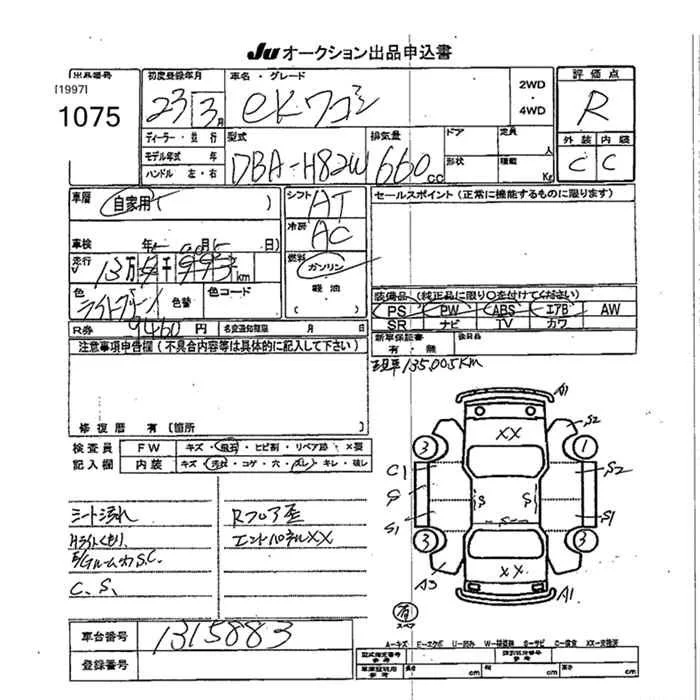 Ju オークション出品申込書
出品番号
[1997]
1075
初度登録年月
23 3月
車名・グレード
eKワゴン
2WD
・
4WD
評価点
R
外装 内装
C C
ディーラー・並行
モデル年式 年
ハンドル 左・右
型式
DBA-H82W
排気量
660cc
ドア
形状
定員
人
積載
Kg
車歴
自家用 ( )
車検 年 月 日)
走行
13万 千 993km
色
ライトグリーン
色替
色コード
シフト AT
冷房 AC
燃料 ガソリン
軽油
( )
セールスポイント (正常に機能するものに限ります)
装備品 (純正品に限り○を付けてください)
PS PW ABS エアB AW
SR ナビ TV カワ
R券 9460円
名変通知期限 月 日
新車保証書
有・無
後日品
現車 135,005KM
注意事項申告欄 (不具合内容等は具体的に記入して下さい)
修復歴 有 [箇所
検査員
記入欄
FW キズ・飛石・ヒビ割・リペア跡・×要
内装 キズ・汚れ・コゲ・穴・スレ・キレ・破レ
シート汚れ
Hライトくもり
S.C.
C.S.
Rフロア歪
エンドパネルXX
A1
S2
XX
3
1
C1
S2
S
S
S
S1
S
S1
3
3
A3
XX
A1
有
スペア
A-キズ E-エクボ U-凹み W-補修跡 S-サビ C-腐食 XX-交換済
車台番号
1315883
登録番号
型式指定番号
参考
類別区分番号
参考
車庫証明用
参考
長さ cm
幅 cm
高さ cm